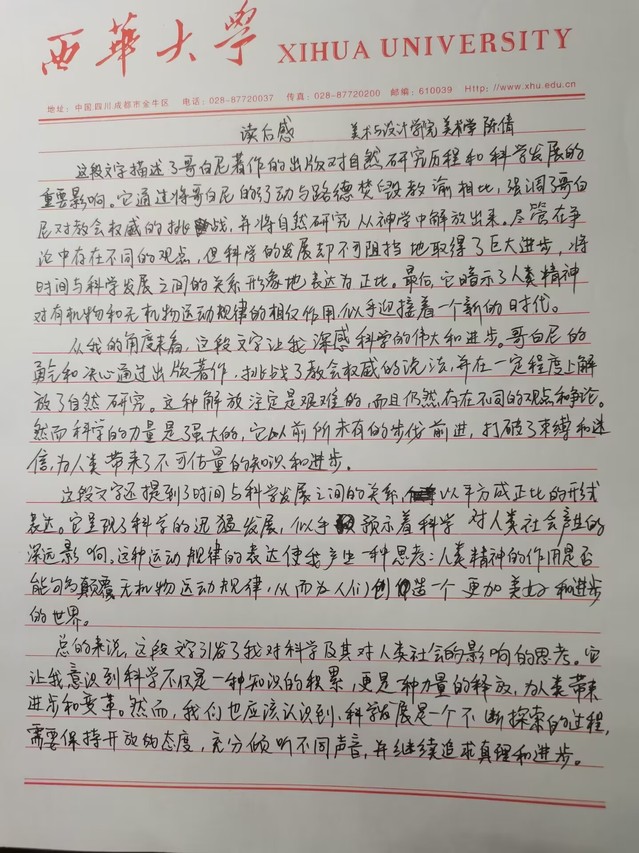 西华大学 XIHUA UNIVERSITY
地址：中国四川成都市金牛区 电话：028-87720037 传真：028-87720200 邮编：610039 Http://www.xhu.edu.cn
读后感 美术与设计学院 美术学 陈倩
这段文字描述了哥白尼著作的出版对自然研究历程和科学发展的
重要影响。它通过将哥白尼的行动与路德焚毁教谕相比，强调了哥白
尼对教会权威的挑战，并将自然研究从神学中解放出来。尽管在争
论中存在不同的观点，但科学的发展却不可阻挡地取得了巨大进步，将
时间与科学发展之间的关系形象地表达为正比。最后，它暗示了人类精神
对有机物和无机物运动规律的相仪作用似乎迎接着一个新的时代。
从我的角度来看，这段文字让我深感科学的伟大和进步。哥白尼的
勇气和决心通过出版著作，挑战了教会权威的说法，并在一定程度上解
放了自然研究。这种解放注定是艰难的，而且仍然存在不同的观点和争论。
然而科学的力量是强大的，它以前所未有的步伐前进，打破了束缚和迷
信，为人类带来了不可估量的知识和进步。
这段文字还提到了时间与科学发展之间的关系，以平方成正比的形式
表达。它呈现了科学的迅猛发展，似乎预示着科学对人类社会产生的
深远影响。这种运动规律的表达使我产生一种思考：人类精神的作用是否
能够颠覆无机物运动规律，从而为人们创造一个更加美好和进步
的世界。
总的来说，这段文字引发了我对科学及其对人类社会的影响的思考。它
让我意识到科学不仅是一种知识的积累，更是一种力量的释放，为人类带来
进步和变革。然而，我们也应该认识到，科学发展是一个不断探索的过程，
需要保持开放的态度，充分倾听不同声音，并继续追求真理和进步。